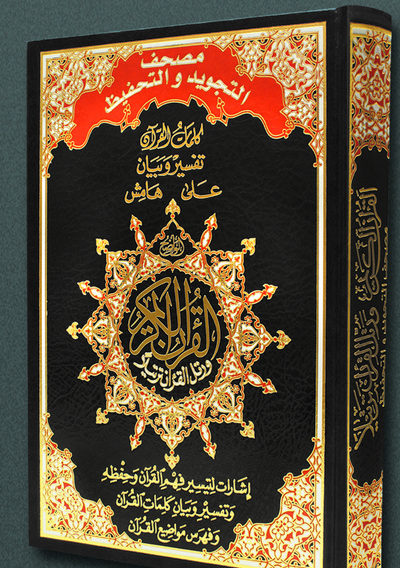 مصحف
التجويد والتحفيظ
كلمات القرآن
تفسير وبيان
على هامش
القرآن الكريم
ورتل القرآن ترتيلا
إشارات لتيسير فهم القرآن وحفظه
وتفسير وبيان كلمات القرآن
وفهرس مواضيع القرآن
القرآن الكريم ورتل القرآن ترتيلا
مصحف التجويد والتحفيظ